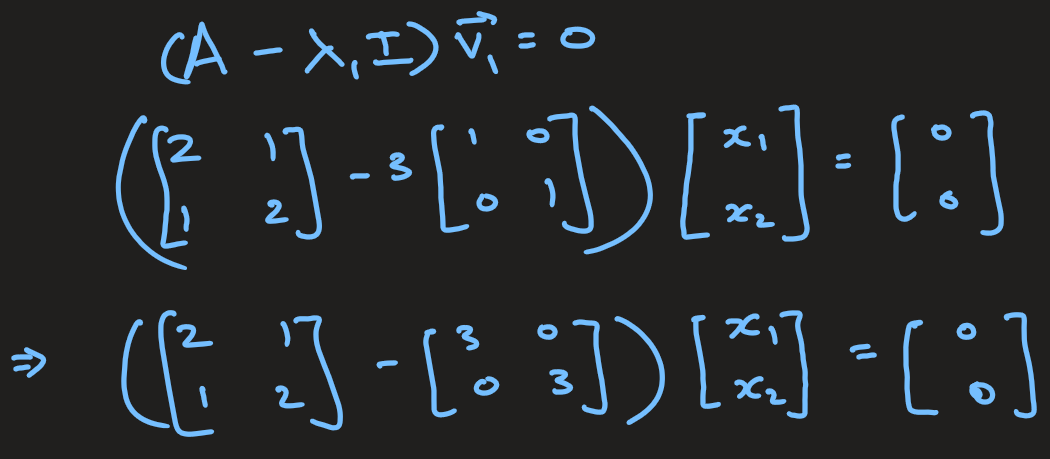 (A - λ₁I) v⃗₁ = 0
([2 1; 1 2] - 3 [1 0; 0 1]) [x₁; x₂] = [0; 0]
⇒ ([2 1; 1 2] - [3 0; 0 3]) [x₁; x₂] = [0; 0]